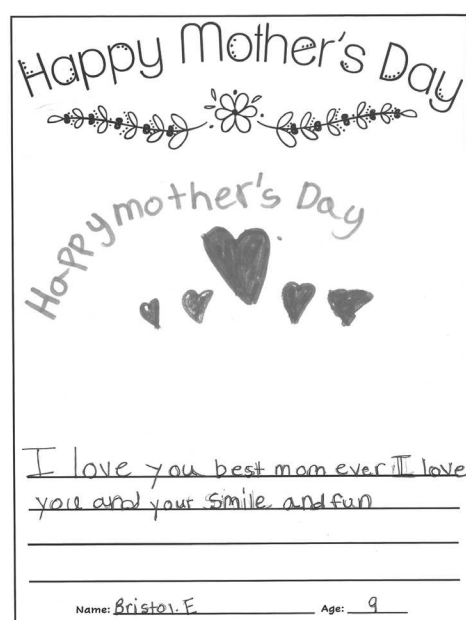 Happy Mother's Day
Happy mother's Day
I love you best mom ever I love
you and your smile and fun
Name: Bristol. E Age: 9